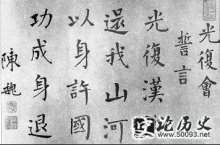 光復會
誓言
光復漢
還我山河
以身許國
功成身退
陳魏
论历史
www.50093.net